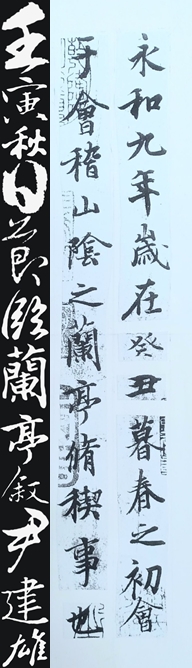 永和九年歲在癸丑暮春之初會
于會稽山陰之蘭亭脩禊事也
壬寅秋日節臨蘭亭敘尹建雄